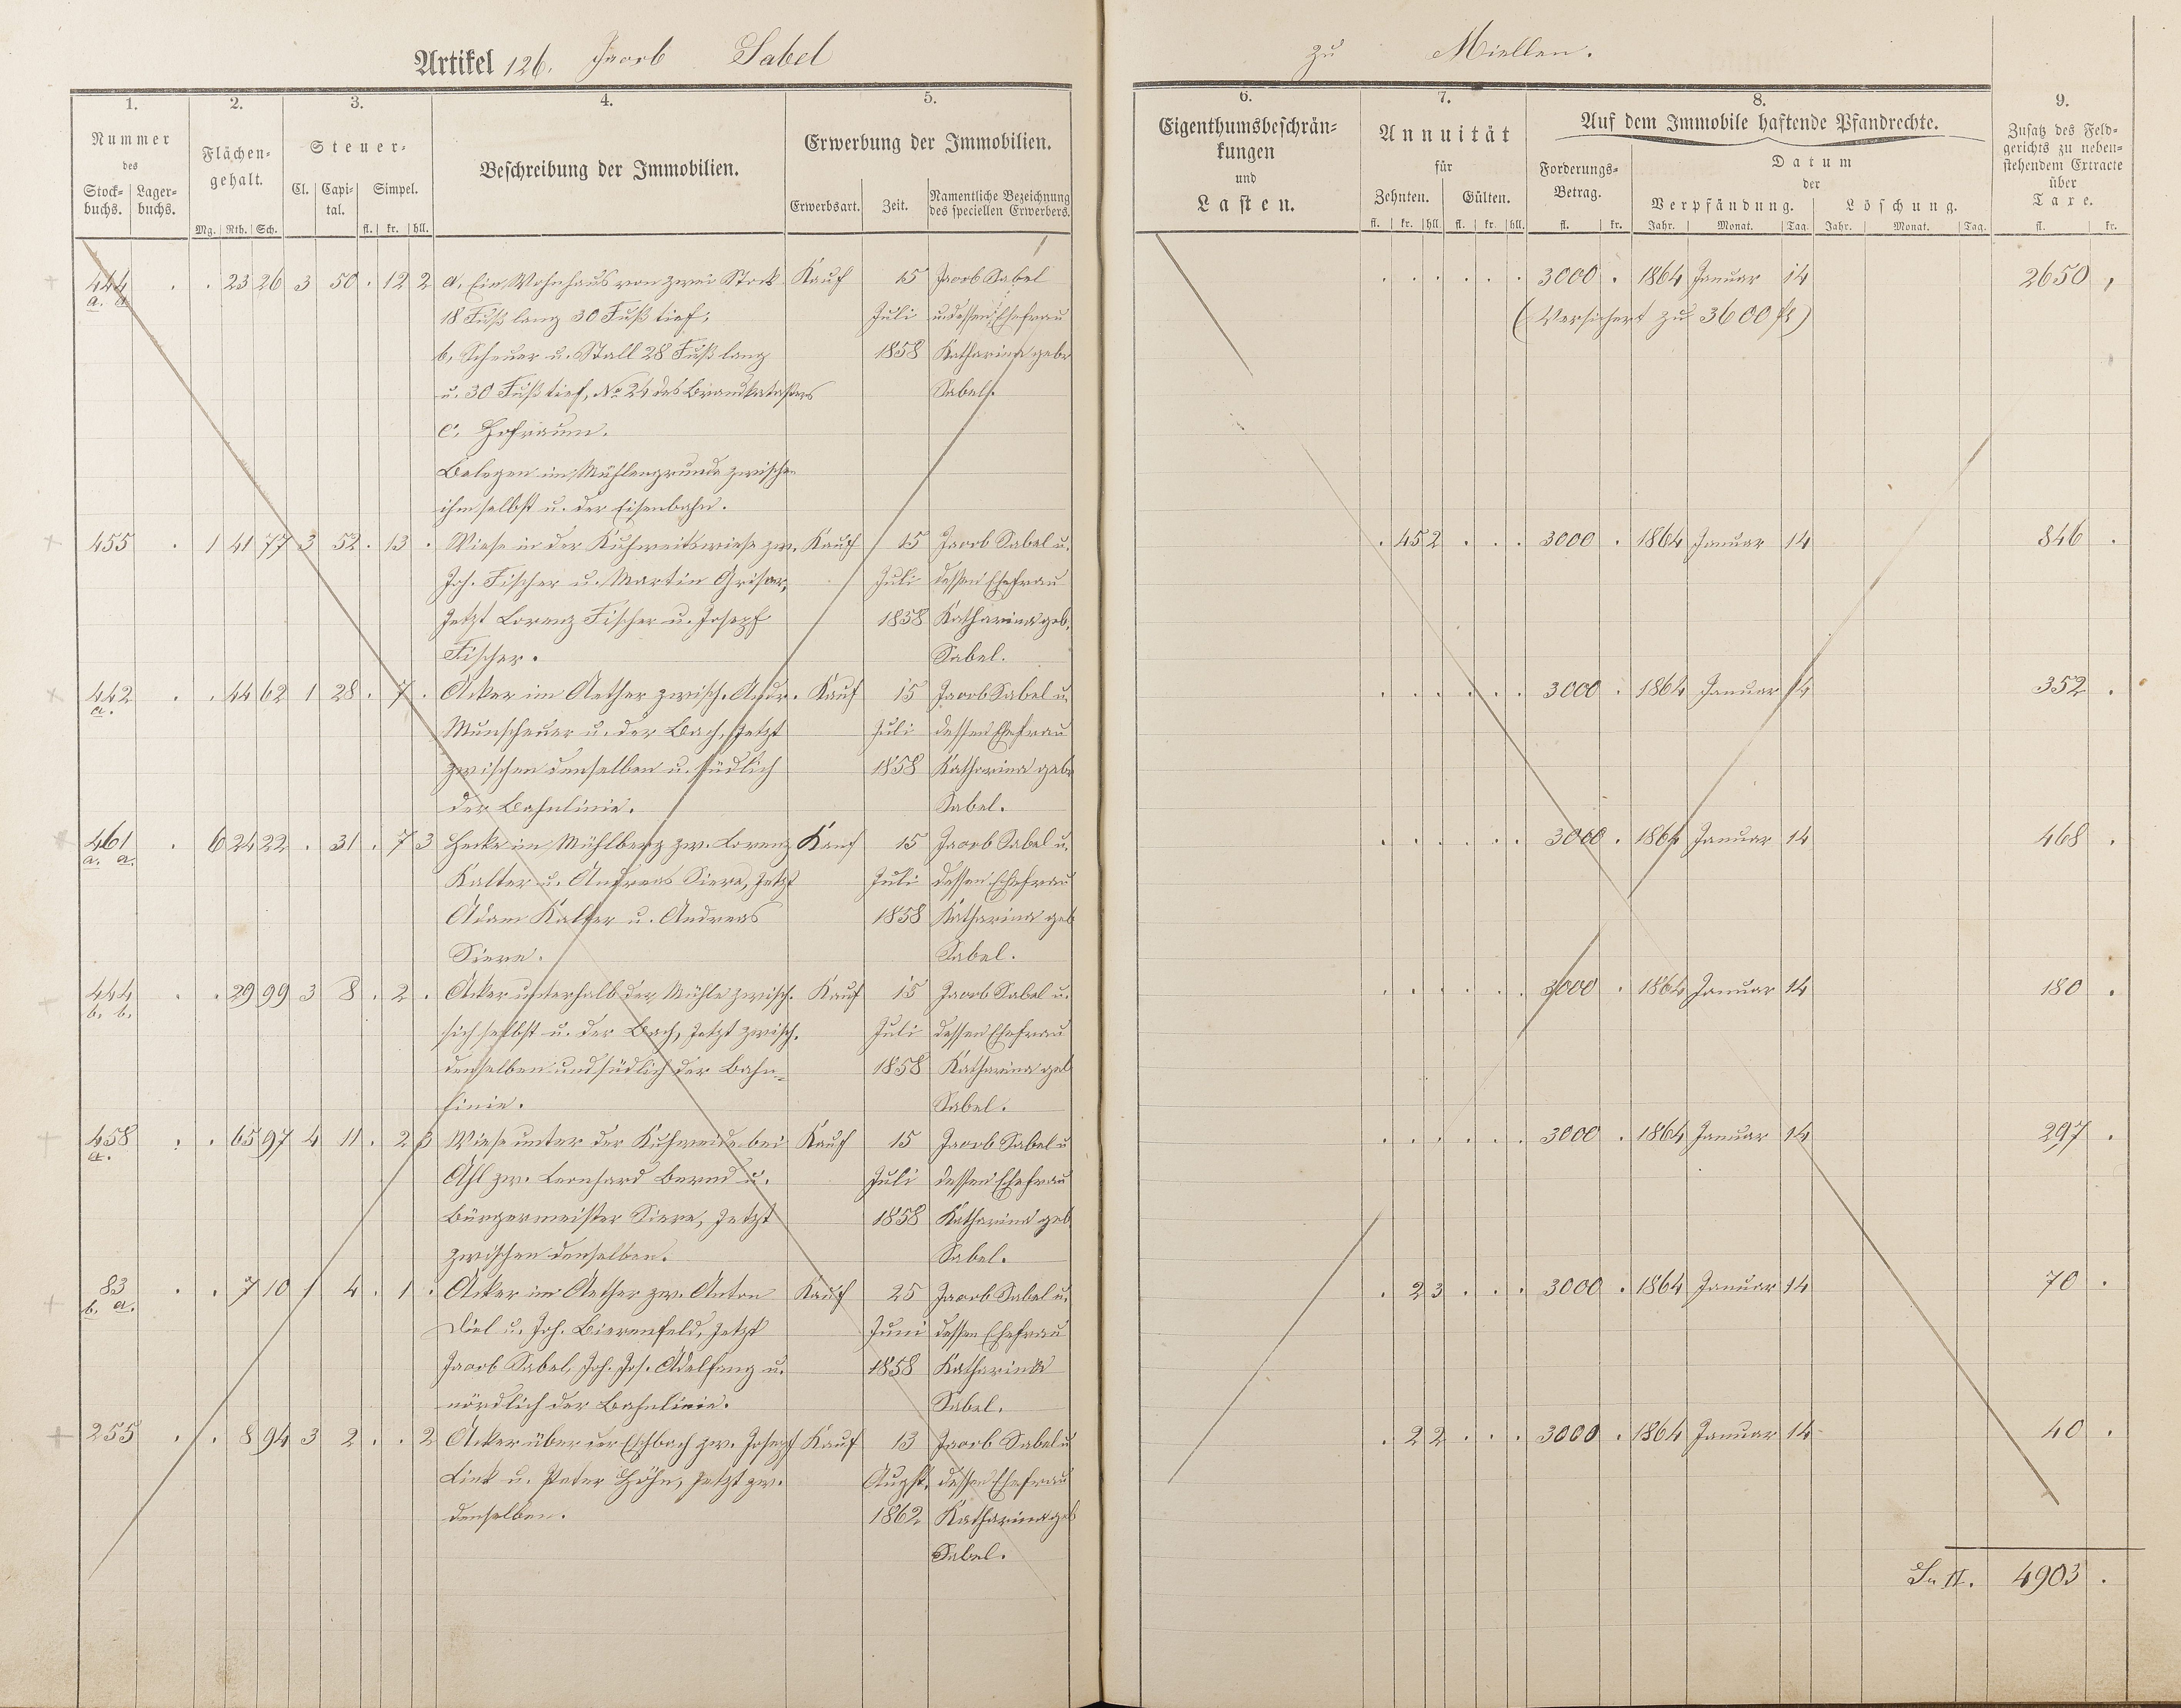 Artikel 126. Jacob Sabel
zu Miellen.
1. 2. 3. 4. 5.
Nummer des Stockbuchs. Lagerbuchs.
Flächengehalt. Mg. Rth. Sch.
Steuer- Cl. Capital. Simpel. fl. kr. hll.
Beschreibung der Immobilien.
Erwerbung der Immobilien.
Erwerbsart. Zeit. Namentliche Bezeichnung des speciellen Erwerbers.
6. 7. 8. 9.
Eigenthumsbeschränkungen und Lasten.
Annuität für Zehnten. Gülten. fl. kr. hll. fl. kr. hll.
Auf dem Immobile haftende Pfandrechte.
Forderungs-Betrag. fl. kr.
Datum der Verpfändung. Löschung.
Jahr. Monat. Tag. Jahr. Monat. Tag.
Zusatz des Feldgerichts zu nebenstehendem Extracte über Taxe. fl. kr.
444 . . 23 26 3 50 . 12 2 a. Ein Wohnhaus von zwei Stock Kauf 15 Jacob Sabel
a. a. 18 Fuß lang 30 Fuß tief; Juli u. dessen Ehefrau
b, Scheuer u. Stall 28 Fuß lang 1858 Katharina geb.
u. 30 Fuß tief, No 24 des Brandkatasters Sabel.
c. Hofraum.
Belegen im Mühlengrunde zwischen
ihm selbst u. der Eisenbahn.
455 . 1 41 77 3 52 . 13 . Wiese in der Kuhweitswiese zw. Kauf 15 Jacob Sabel u.
Joh. Fischer u. Martin Grisar, Juli dessen Ehefrau
Jetzt Lorenz Fischer u. Joseph 1858 Katharina geb.
Fischer. Sabel.
442 . . 44 62 1 28 . 7 . Acker im Aether zwisch. Andr. Kauf 15 Jacob Sabel u.
a. Munscheuer u. der Bach, Jetzt Juli dessen Ehefrau
zwischen denselben u. südlich 1858 Katharina geb.
der Bahnlinie. Sabel.
461 . 6 24 22 . 31 . 7 3 Hecke im Mühlberg zw. Lorenz Kauf 15 Jacob Sabel u.
a. a. Kalter u. Andreas Siere, Jetzt Juli dessen Ehefrau
Adam Kalter u. Andreas 1858 Katharina geb
Siere. Sabel.
444 . . 29 99 3 8 . 2 . Acker unterhalb der Mühle zwisch. Kauf 15 Jacob Sabel u.
b. b. sich selbst u. der Bach, Jetzt zwisch. Juli dessen Ehefrau
denselben und südlich der Bahn- 1858 Katharina geb
linie. Sabel.
458 . . 65 97 4 11 . 2 3 Wiese unter der Kuhweide bei Kauf 15 Jacob Sabel u
a. Ahl zw. Leonhard Bernd u. Juli dessen Ehefrau
Bürgermeister Siere, Jetzt 1858 Katharina geb
zwischen denselben. Sabel.
83 . . 7 10 1 4 . 1 . Acker im Aether zw. Anton Kauf 25 Jacob Sabel u.
b. a. Diel u. Joh. Bierenfeld, Jetzt Juni dessen Ehefrau
Jacob Sabel, Joh. Jos. Adelfang u. 1858 Katharina
nördlich der Bahnlinie. Sabel.
255 . . 8 94 3 2 . . 2 Acker über der Eschbach zw. Joseph Kauf 13 Jacob Sabel u
Link u. Peter Höhn, Jetzt zw. Augst. dessen Ehefrau
denselben. 1862 Katharina geb
Sabel.
3000 . 1864 Januar 14 2650 ,
(Versichert zu 3600 fl)
. 45 2 . . . 3000 . 1864 Januar 14 846 .
3000 . 1864 Januar 14 352 .
3000 . 1864 Januar 14 468 .
3000 . 1864 Januar 14 180 .
3000 . 1864 Januar 14 297 .
. 2 3 . . . 3000 . 1864 Januar 14 70 .
. 2 2 . . . 3000 . 1864 Januar 14 40 .
Sa. II. 4903 .